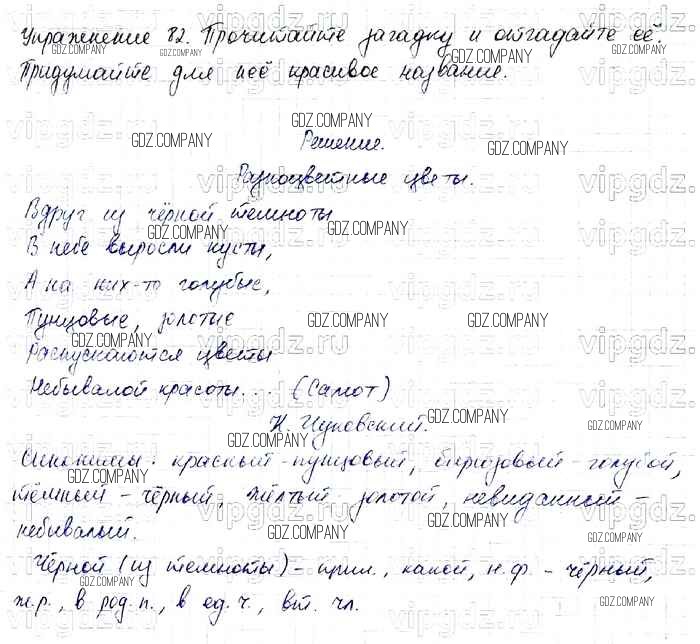 Упражнение 82. Прочитайте загадку и отгадайте её.
Придумайте для неё красивое название.
Решение.
Разноцветные цветы.
Вдруг из чёрной темноты
В небе выросли кусты,
А на них-то голубые,
Пунцовые, золотые
Распускаются цветы
Небывалой красоты... (Салют)
К. Чуковский.
Синонимы: красный - пунцовый, бирюзовый - голубой,
тёмный - чёрный, жёлтый - золотой, невиданный -
небывалый.
Чёрной (из темноты) - прил., какой, н.ф. - чёрный,
ж.р., в род.п., в ед.ч., вт. чл.
GDZ.COMPANY
vipgdz.ru